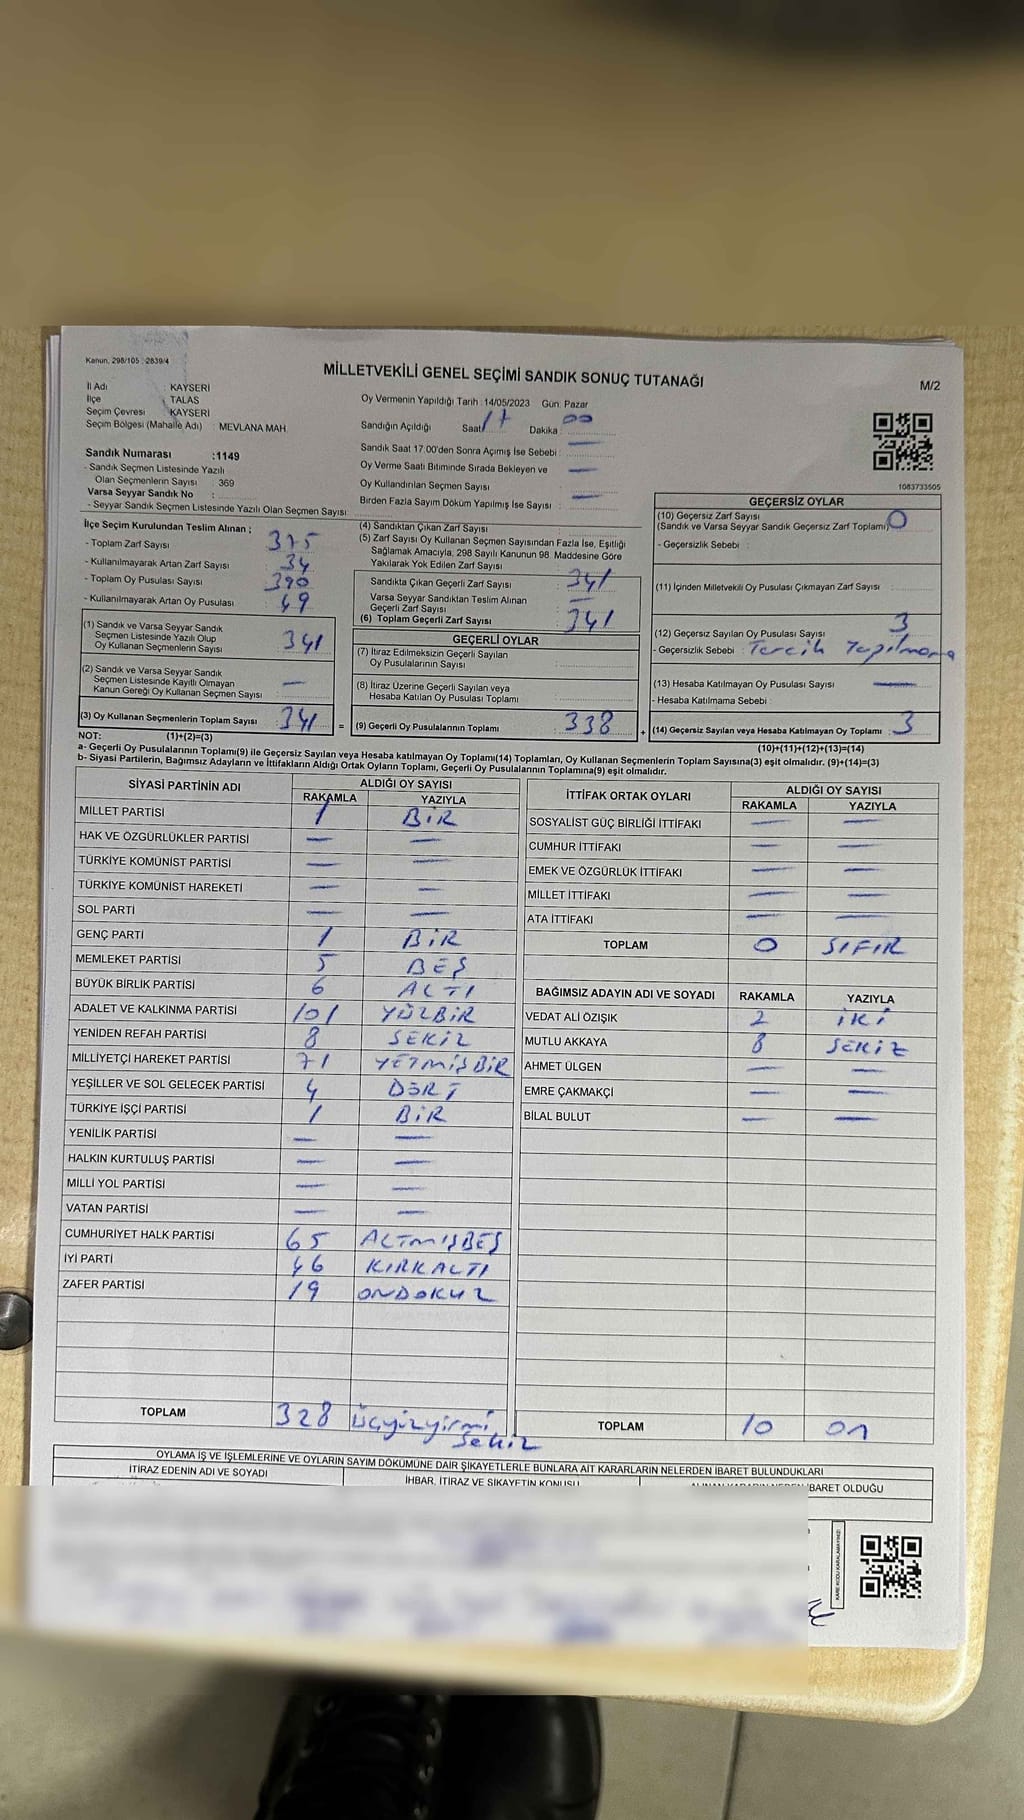 Kanun, 298/105 : 2839/4
MİLLETVEKİLİ GENEL SEÇİMİ SANDIK SONUÇ TUTANAĞI
M/2
İl Adı : KAYSERİ
İlçe : TALAS
Seçim Çevresi : KAYSERİ
Seçim Bölgesi (Mahalle Adı) : MEVLANA MAH.
Oy Vermenin Yapıldığı Tarih :14/05/2023 Gün: Pazar
Sandığın Açıldığı Saat 17 Dakika : 00
Sandık Saat 17:00'den Sonra Açımış İse Sebebi : —
Oy Verme Saati Bitiminde Sırada Bekleyen ve
Oy Kullandırılan Seçmen Sayısı : —
Birden Fazla Sayım Döküm Yapılmış İse Sayısı : —
Sandık Numarası :1149
- Sandık Seçmen Listesinde Yazılı
Olan Seçmenlerin Sayısı : 369
Varsa Seyyar Sandık No :
- Seyyar Sandık Seçmen Listesinde Yazılı Olan Seçmen Sayısı:
1083733505
İlçe Seçim Kurulundan Teslim Alınan ;
- Toplam Zarf Sayısı : 375
- Kullanılmayarak Artan Zarf Sayısı : 34
- Toplam Oy Pusulası Sayısı : 390
- Kullanılmayarak Artan Oy Pusulası : 49
(1) Sandık ve Varsa Seyyar Sandık
Seçmen Listesinde Yazılı Olup
Oy Kullanan Seçmenlerin Sayısı : 341
(2) Sandık ve Varsa Seyyar Sandık
Seçmen Listesinde Kayıtlı Olmayan
Kanun Gereği Oy Kullanan Seçmen Sayısı : —
(3) Oy Kullanan Seçmenlerin Toplam Sayısı : 341 =
(4) Sandıktan Çıkan Zarf Sayısı :
(5) Zarf Sayısı Oy Kullanan Seçmen Sayısından Fazla İse, Eşitliği
Sağlamak Amacıyla, 298 Sayılı Kanunun 98. Maddesine Göre
Yakılarak Yok Edilen Zarf Sayısı :
Sandıkta Çıkan Geçerli Zarf Sayısı : 341
Varsa Seyyar Sandıktan Teslim Alınan
Geçerli Zarf Sayısı : —
(6) Toplam Geçerli Zarf Sayısı : 341
GEÇERLİ OYLAR
(7) İtiraz Edilmeksizin Geçerli Sayılan
Oy Pusulalarının Sayısı :
(8) İtiraz Üzerine Geçerli Sayılan veya
Hesaba Katılan Oy Pusulası Toplamı :
(9) Geçerli Oy Pusulalarının Toplamı : 338 +
GEÇERSİZ OYLAR
(10) Geçersiz Zarf Sayısı
(Sandık ve Varsa Seyyar Sandık Geçersiz Zarf Toplamı) 0
- Geçersizlik Sebebi :
(11) İçinden Milletvekili Oy Pusulası Çıkmayan Zarf Sayısı :
(12) Geçersiz Sayılan Oy Pusulası Sayısı : 3
- Geçersizlik Sebebi : Tercih Yapılmama
(13) Hesaba Katılmayan Oy Pusulası Sayısı : —
- Hesaba Katılmama Sebebi :
(14) Geçersiz Sayılan veya Hesaba Katılmayan Oy Toplamı : 3
NOT: (1)+(2)=(3) (10)+(11)+(12)+(13)=(14)
a- Geçerli Oy Pusulalarının Toplamı(9) ile Geçersiz Sayılan veya Hesaba katılmayan Oy Toplamı(14) Toplamları, Oy Kullanan Seçmenlerin Toplam Sayısına(3) eşit olmalıdır. (9)+(14)=(3)
b- Siyasi Partilerin, Bağımsız Adayların ve İttifakların Aldığı Ortak Oyların Toplamı, Geçerli Oy Pusulalarının Toplamına(9) eşit olmalıdır.
SİYASİ PARTİNİN ADI ALDIĞI OY SAYISI
RAKAMLA YAZIYLA
MİLLET PARTİSİ 1 BİR
HAK VE ÖZGÜRLÜKLER PARTİSİ — —
TÜRKİYE KOMÜNİST PARTİSİ — —
TÜRKİYE KOMÜNİST HAREKETİ — —
SOL PARTİ — —
GENÇ PARTİ 1 BİR
MEMLEKET PARTİSİ 5 BEŞ
BÜYÜK BİRLİK PARTİSİ 6 ALTI
ADALET VE KALKINMA PARTİSİ 101 YÜZBİR
YENİDEN REFAH PARTİSİ 8 SEKİZ
MİLLİYETÇİ HAREKET PARTİSİ 71 YETMİŞBİR
YEŞİLLER VE SOL GELECEK PARTİSİ 4 DÖRT
TÜRKİYE İŞÇİ PARTİSİ 1 BİR
YENİLİK PARTİSİ — —
HALKIN KURTULUŞ PARTİSİ — —
MİLLİ YOL PARTİSİ — —
VATAN PARTİSİ — —
CUMHURİYET HALK PARTİSİ 65 ALTMIŞBEŞ
İYİ PARTİ 46 KIRKALTI
ZAFER PARTİSİ 19 ONDOKUZ
TOPLAM 328 üçyüzyirmi
sekiz
İTTİFAK ORTAK OYLARI ALDIĞI OY SAYISI
RAKAMLA YAZIYLA
SOSYALİST GÜÇ BİRLİĞİ İTTİFAKI — —
CUMHUR İTTİFAKI — —
EMEK VE ÖZGÜRLÜK İTTİFAKI — —
MİLLET İTTİFAKI — —
ATA İTTİFAKI — —
TOPLAM 0 SIFIR
BAĞIMSIZ ADAYIN ADI VE SOYADI RAKAMLA YAZIYLA
VEDAT ALİ ÖZIŞIK 2 İKİ
MUTLU AKKAYA 8 SEKİZ
AHMET ÜLGEN — —
EMRE ÇAKMAKÇİ — —
BİLAL BULUT — —
TOPLAM 10 on
OYLAMA İŞ VE İŞLEMLERİNE VE OYLARIN SAYIM DÖKÜMÜNE DAİR ŞİKAYETLERLE BUNLARA AİT KARARLARIN NELERDEN İBARET BULUNDUKLARI
İTİRAZ EDENİN ADI VE SOYADI
İHBAR, İTİRAZ VE ŞİKAYETİN KONUSU
İBARET OLDUĞU
KARE KODU KARALAMAYINIZ!